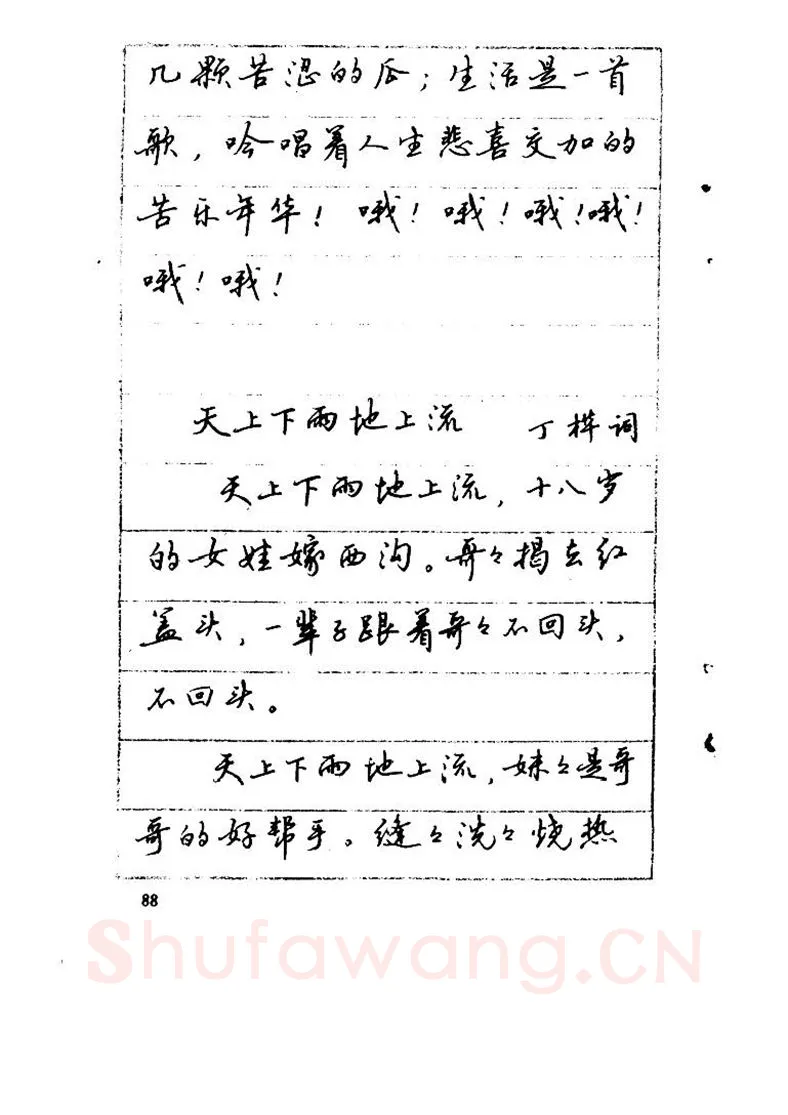 几颗苦涩的瓜；生活是一首
歌，吟唱着人生悲喜交加的
苦乐年华！哦！哦！哦！哦！
哦！哦！
天上下雨地上流 丁桦词
天上下雨地上流，十八岁
的女娃嫁西沟。哥々揭去红
盖头，一辈子跟着哥々不回头，
不回头。
天上下雨地上流，妹々是哥
哥的好帮手。缝々洗々烧热
88
Shufawang.CN